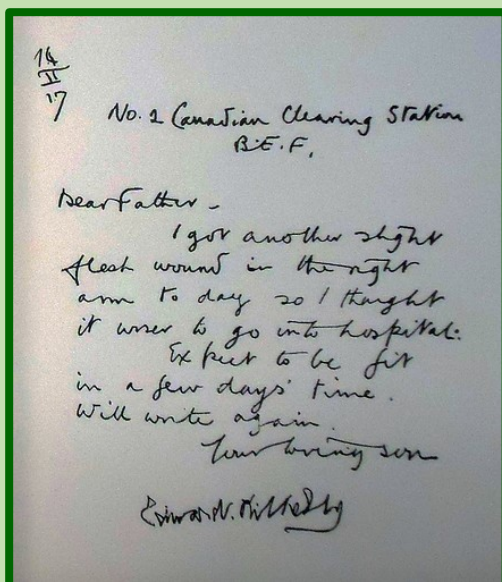 14
II
'17
No. 1 Canadian Clearing Station
B.E.F.
Dear Father -
I got another slight
flesh wound in the right
arm to day so I thought
it wiser to go into hospital:
Expect to be fit
in a few days' time.
Will write again.
Your loving son